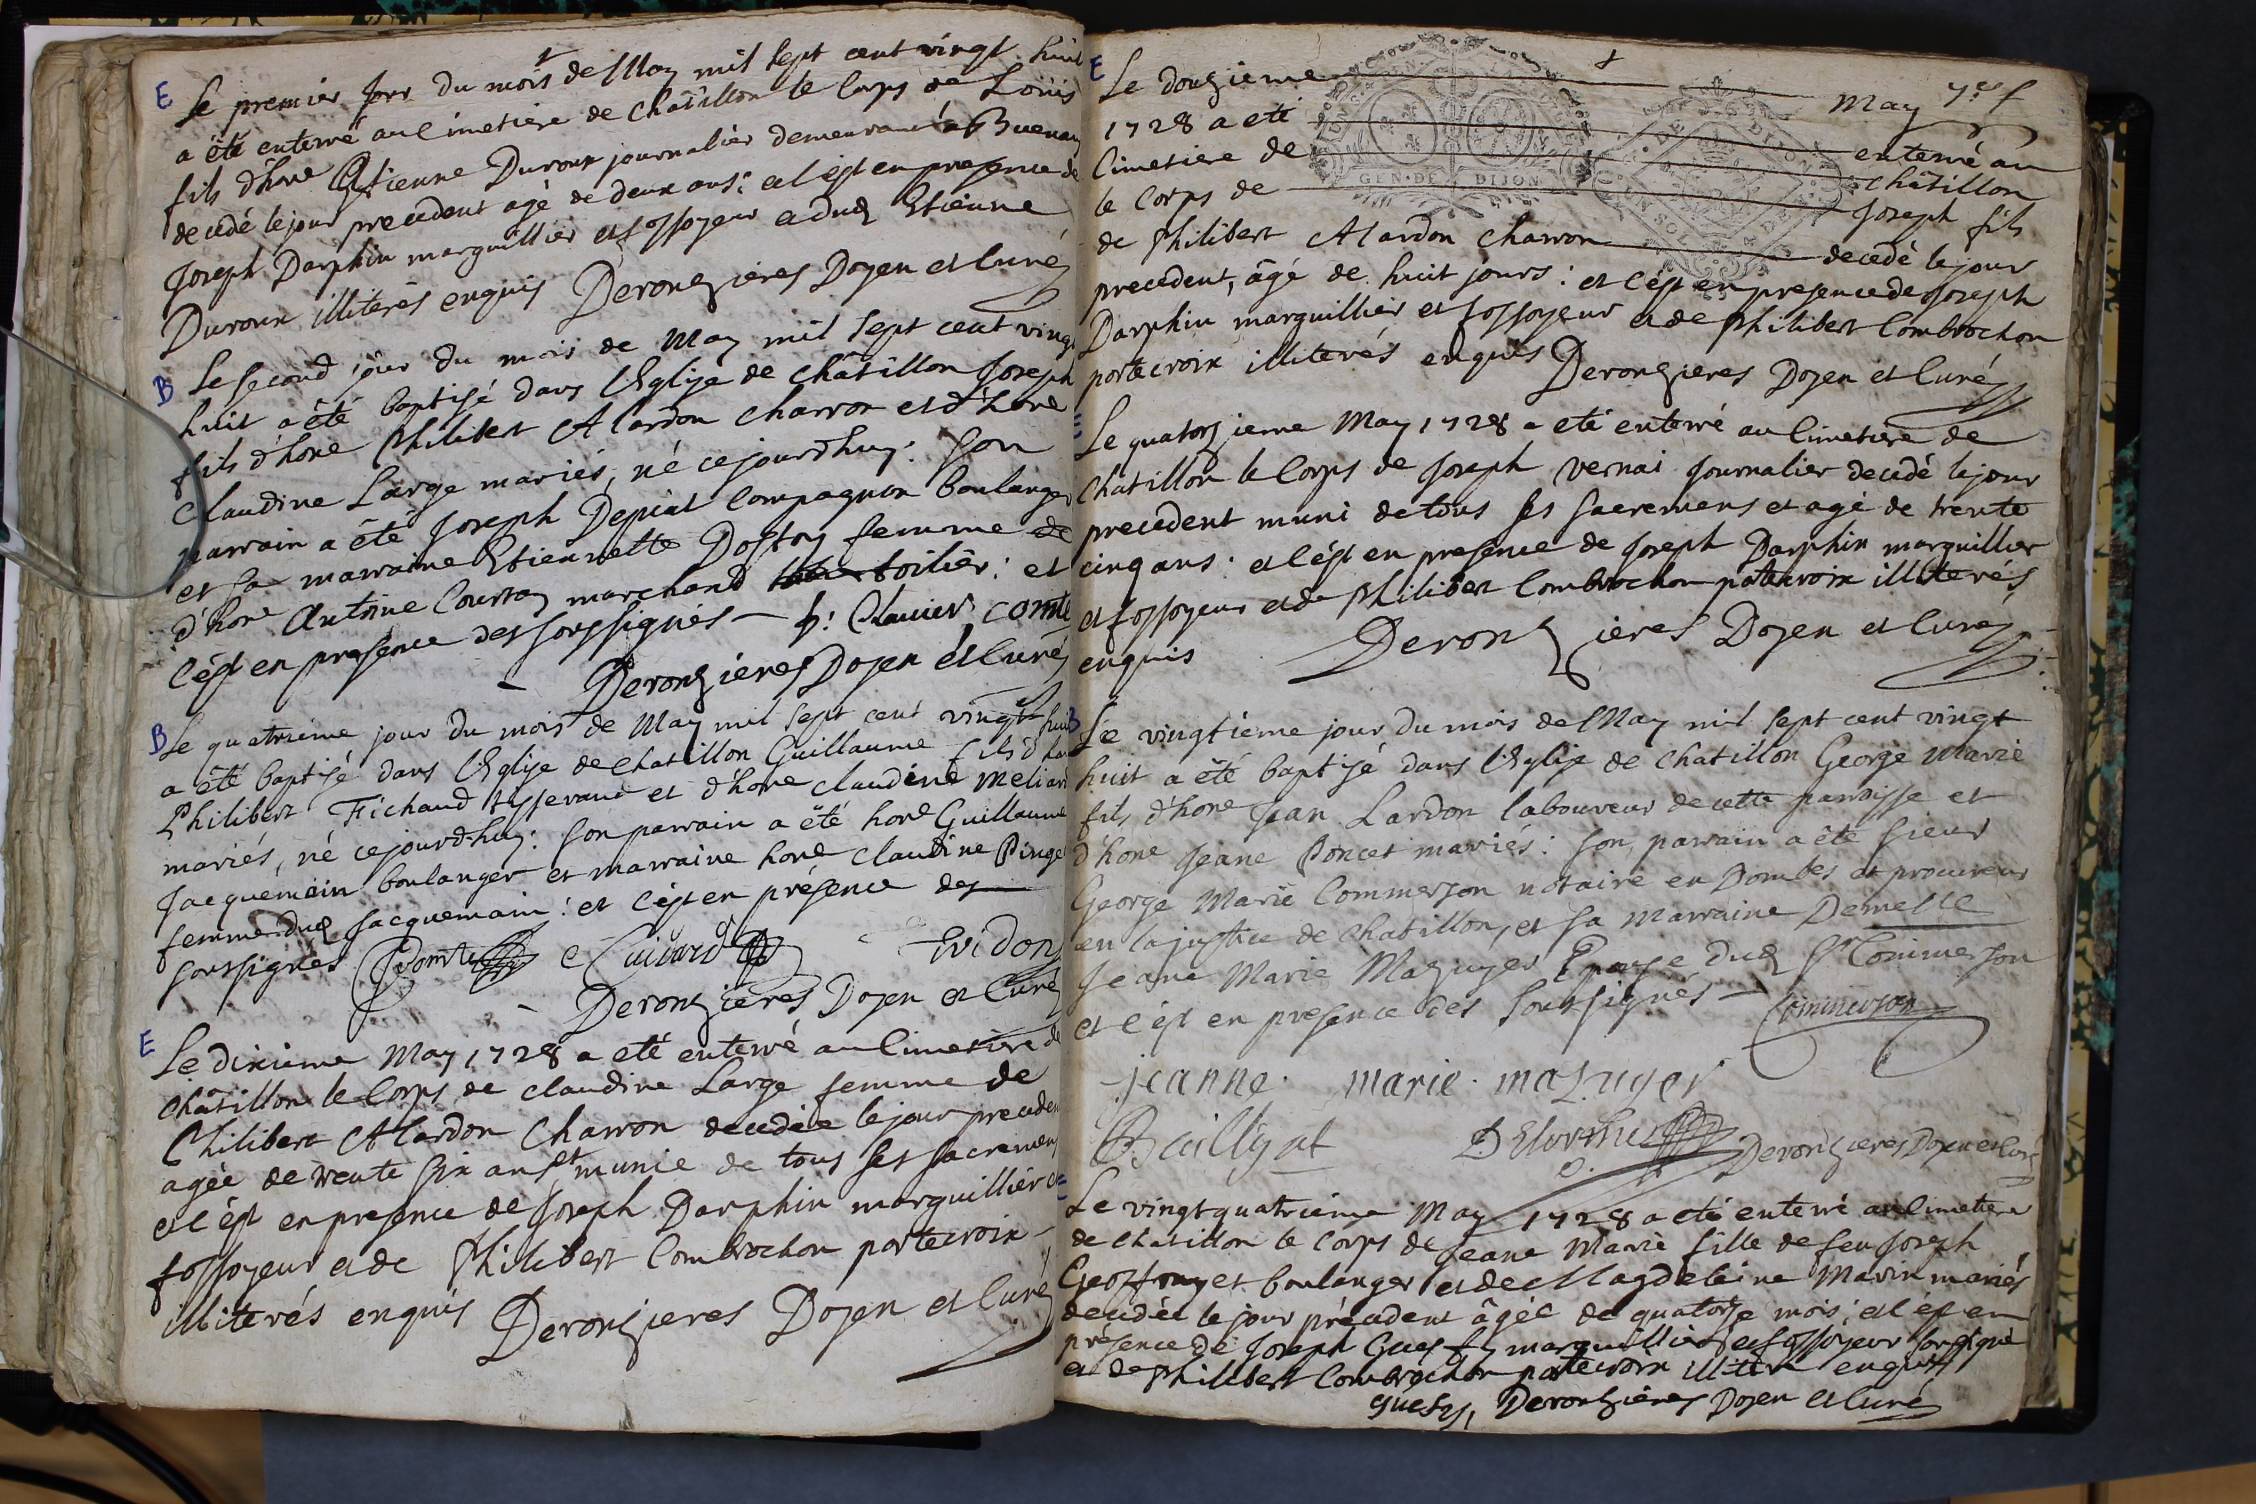 E Le premier Jour du mois de May mil sept cent vingt huit
a été enterré au Cimetiere de Châtillon le Corps de Loüis
fils d'hone Etienne Duroux journalier demeurant à Buenan
decedé le jour precedent agé de deux ans: et c'est en presence de
Joseph Darphin marguillier et fossoyeur et dud Etienne
Duroux illiterés enquis Deronzieres Doyen et Curé
B Le second jour du mois de May mil sept cent vingt
huit a été baptisé dans l'Eglise de Châtillon Joseph
fils d'hone Philibert Alardon charron et d'hone
Claudine Large mariés, né cejourdhuy: son
parrain a été Joseph Depiat Compagnon boulanger
et sa marraine Etiennette Dostoy femme de
d'hone Antoine Courtoy marchand toilier: et
c'est en presence des soussignés — Clavier, comte
Deronzieres Doyen et Curé
B Le quatrieme jour du mois de May mil sept cent vingt huit
a été baptisé dans l'Eglise de Chatillon Guillaume fils d'hone
Philibert Fichaud tisserand et d'hone claudine Meliard
mariés, né cejourdhuy: son parrain a été hone Guillaume
Jacquemain boulanger et marraine hone Claudine Pinge
femme dud Jacquemain: et c'est en présence des
soussignés Comte Guidon
Deronzieres Doyen et Curé
E Le dixieme May 1728 a eté enterré au Cimetiere de
Châtillon le Corps de Claudine Large femme de
Philibert Alardon Charron decedée le jour precedent
agée de trente six ans et munie de tous ses sacremens
et c'est en presence de Joseph Darphin marguillier et
fossoyeur et de Philibert Combrochon portecroix
illiterés enquis Deronzieres Doyen et Curé
E Le douzieme May
1728 a eté enterré au
Cimetiere de Châtillon
le Corps de Joseph fils
de Philibert Alardon Charron decedé le jour
precedent, âgé de huit jours: et c'est en presence de Joseph
Darphin marguillier et fossoyeur et de Philibert Combrochon
portecroix illiterés enquis Deronzieres Doyen et Curé
GEN · DE DIJON
E Le quatorzieme May 1728 a eté enterré au Cimetiere de
Châtillon le Corps de Joseph Vernai Journalier decedé le jour
precedent muni de tous ses sacremens et agé de trente
cinq ans: et c'est en presence de Joseph Darphin marguillier
et fossoyeur et de Philibert Combrochon portecroix illiterés
enquis Deronzieres Doyen et Curé
B Le vingtiéme jour du mois de May mil sept cent vingt
huit a été baptisé dans l'Eglise de Chatillon George Marie
fils d'hone Jean Lardon laboureur de cette parroisse et
d'hone Jeane Poncet mariés: son parrain a été sieur
George Marie Commerson notaire en Dombes et procureur
en la justice de Chatillon, et sa marraine Demelle
Jeane Marie Mazuyer Epouse dud Sr Commerson
et c'est en presence des soussignés — Commerson
jeanne marie mazuyer
Baillyat Delorme Deronzieres Doyen et Curé
E Le vingtquatrieme May 1728 a eté enterré au Cimetiere
de Chatillon le Corps de Jeane Marie fille de feu Joseph
Geoffrayet boulanger et de Magdeleine Marin mariés
decedée le jour précedent âgée de quatorze mois: et c'est en
presence de Joseph Guesty marguillier et fossoyeur soussigné
et de Philibert Combrochon portecroix illiteré enquis
guesty, Deronzieres Doyen et Curé